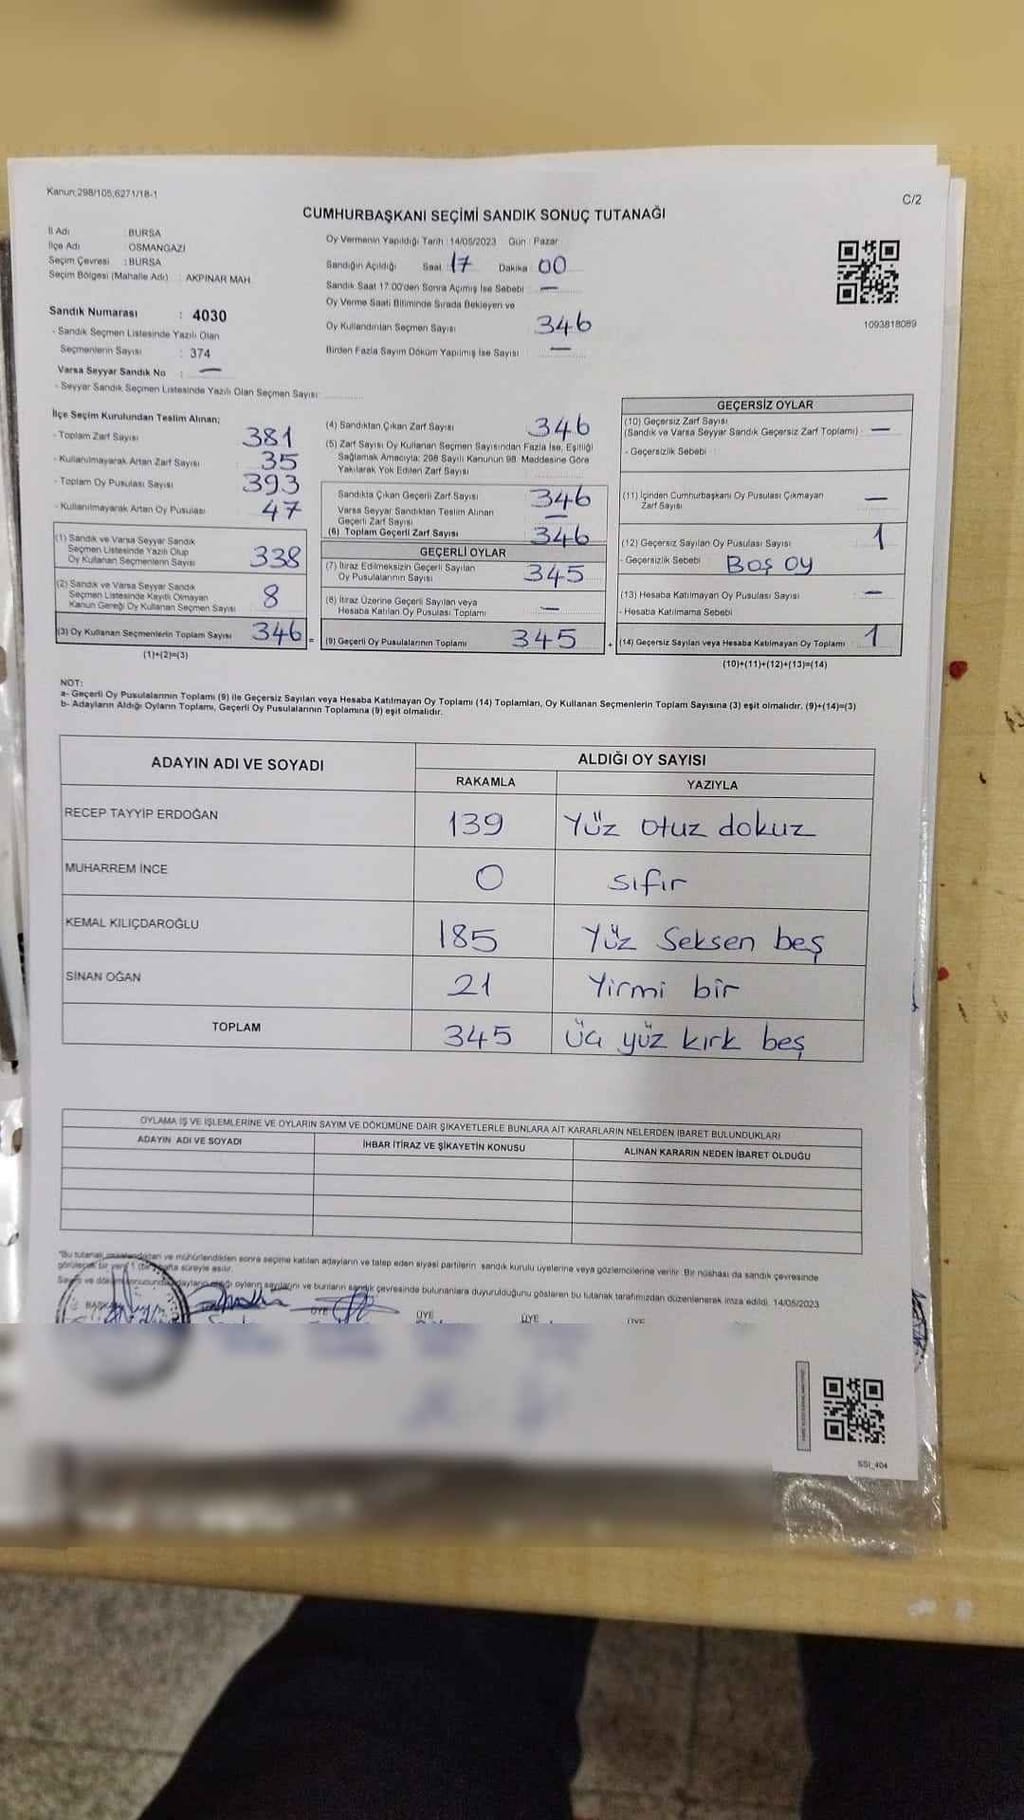 Kanun;298/105;6271/18-1
C/2
CUMHURBAŞKANI SEÇİMİ SANDIK SONUÇ TUTANAĞI
İl Adı BURSA
İlçe Adı OSMANGAZİ
Seçim Çevresi : BURSA
Seçim Bölgesi (Mahalle Adı) : AKPINAR MAH
Sandık Numarası : 4030
- Sandık Seçmen Listesinde Yazılı Olan
Seçmenlerin Sayısı : 374
Varsa Seyyar Sandık No : —
- Seyyar Sandık Seçmen Listesinde Yazılı Olan Seçmen Sayısı
Oy Vermenin Yapıldığı Tarih : 14/05/2023 Gün : Pazar
Sandığın Açıldığı Saat 17 Dakika 00
Sandık Saat 17.00'den Sonra Açımış İse Sebebi —
Oy Verme Saati Bitiminde Sırada Bekleyen ve
Oy Kullandırılan Seçmen Sayısı 346
Birden Fazla Sayım Döküm Yapılmış İse Sayısı —
1093818089
İlçe Seçim Kurulundan Teslim Alınan;
- Toplam Zarf Sayısı 381
- Kullanılmayarak Artan Zarf Sayısı 35
- Toplam Oy Pusulası Sayısı 393
- Kullanılmayarak Artan Oy Pusulası 47
(1) Sandık ve Varsa Seyyar Sandık
Seçmen Listesinde Yazılı Olup
Oy Kullanan Seçmenlerin Sayısı 338
(2) Sandık ve Varsa Seyyar Sandık
Seçmen Listesinde Kayıtlı Olmayan
Kanun Gereği Oy Kullanan Seçmen Sayısı 8
(3) Oy Kullanan Seçmenlerin Toplam Sayısı 346 =
(1)+(2)=(3)
(4) Sandıktan Çıkan Zarf Sayısı 346
(5) Zarf Sayısı Oy Kullanan Seçmen Sayısından Fazla İse, Eşitliği
Sağlamak Amacıyla; 298 Sayılı Kanunun 98. Maddesine Göre
Yakılarak Yok Edilen Zarf Sayısı
Sandıkta Çıkan Geçerli Zarf Sayısı 346
Varsa Seyyar Sandıktan Teslim Alınan
Geçerli Zarf Sayısı —
(6) Toplam Geçerli Zarf Sayısı 346
GEÇERLİ OYLAR
(7) İtiraz Edilmeksizin Geçerli Sayılan
Oy Pusulalarının Sayısı 345
(8) İtiraz Üzerine Geçerli Sayılan veya
Hesaba Katılan Oy Pusulası Toplamı —
(9) Geçerli Oy Pusulalarının Toplamı 345 +
GEÇERSİZ OYLAR
(10) Geçersiz Zarf Sayısı
(Sandık ve Varsa Seyyar Sandık Geçersiz Zarf Toplamı) —
- Geçersizlik Sebebi
(11) İçinden Cumhurbaşkanı Oy Pusulası Çıkmayan
Zarf Sayısı —
(12) Geçersiz Sayılan Oy Pusulası Sayısı 1
- Geçersizlik Sebebi Boş oy
(13) Hesaba Katılmayan Oy Pusulası Sayısı —
- Hesaba Katılmama Sebebi
(14) Geçersiz Sayılan veya Hesaba Katılmayan Oy Toplamı 1
(10)+(11)+(12)+(13)=(14)
NOT:
a- Geçerli Oy Pusulalarının Toplamı (9) ile Geçersiz Sayılan veya Hesaba Katılmayan Oy Toplamı (14) Toplamları, Oy Kullanan Seçmenlerin Toplam Sayısına (3) eşit olmalıdır. (9)+(14)=(3)
b- Adayların Aldığı Oyların Toplamı, Geçerli Oy Pusulalarının Toplamına (9) eşit olmalıdır.
ADAYIN ADI VE SOYADI ALDIĞI OY SAYISI
RAKAMLA YAZIYLA
RECEP TAYYİP ERDOĞAN 139 Yüz otuz dokuz
MUHARREM İNCE 0 sıfır
KEMAL KILIÇDAROĞLU 185 Yüz Seksen beş
SİNAN OĞAN 21 Yirmi bir
TOPLAM 345 üç yüz kırk beş
OYLAMA İŞ VE İŞLEMLERİNE VE OYLARIN SAYIM VE DÖKÜMÜNE DAİR ŞİKAYETLERLE BUNLARA AİT KARARLARIN NELERDEN İBARET BULUNDUKLARI
ADAYIN ADI VE SOYADI İHBAR İTİRAZ VE ŞİKAYETİN KONUSU ALINAN KARARIN NEDEN İBARET OLDUĞU
"Bu tutanak ve mühürlendikten sonra seçime katılan adayların ve talep eden siyasi partilerin sandık kurulu üyelerine veya gözlemcilerine verilir. Bir nüshası da sandık çevresinde
görülecek bir yere 1 (bir) hafta süreyle asılır.
Sayım ve adayların aldığı oyların sayılarını ve bunların sandık çevresinde bulunanlara duyurulduğunu gösteren bu tutanak tarafımızdan düzenlenerek imza edildi. 14/05/2023
BAŞKAN ÜYE ÜYE ÜYE ÜYE
SSI_404